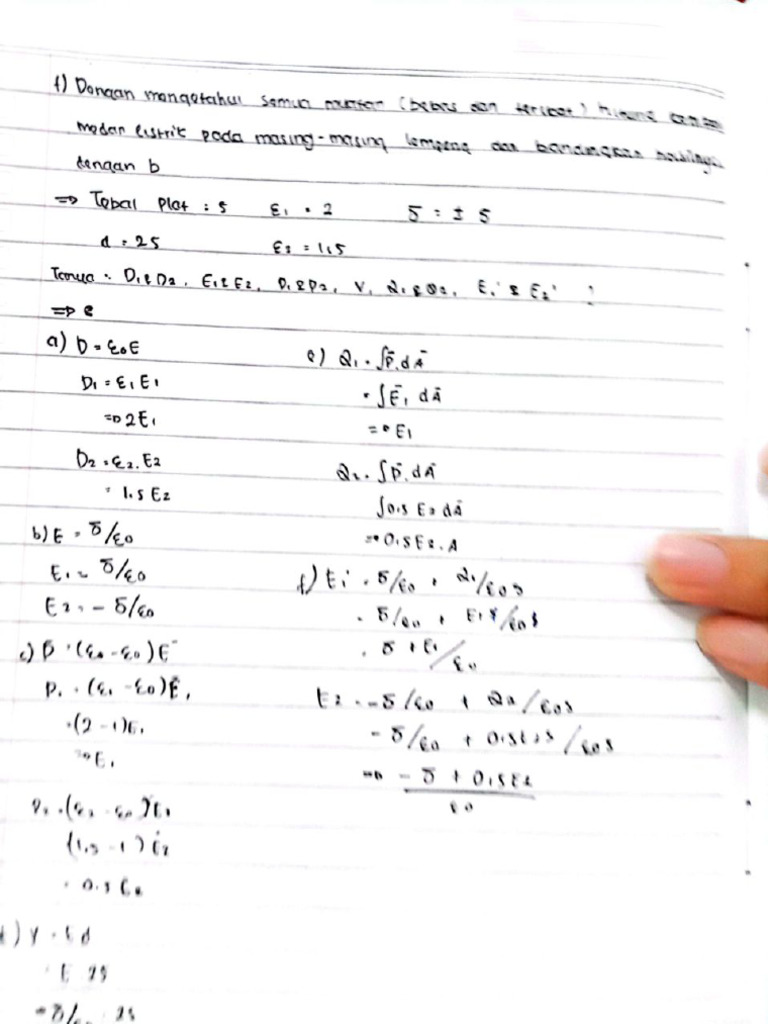 f) Dengan mengetahui semua muatan (bebas dan terikat) hitung
medan listrik pada masing-masing lempeng dan bandingkan hasilnya
dengan b
=> Tebal Plat : s ε₁ = 2 δ = ± s
d = 2s ε₂ = 1,5
Tanya : D₁ & D₂, E₁ & E₂, P₁ & P₂, V, Q₁ & Q₂, E₁' & E₂' ?
a) D = ε₀E
D₁ = ε₁E₁
=> 2E₁
D₂ = ε₂.E₂
= 1.5 E₂
b) E = δ/ε₀
E₁ = δ/ε₀
E₂ = - δ/ε₀
c) P = (ε₀ - ε₀)E
P₁ = (ε₁ - ε₀)E₁
= (2 - 1)E₁
=> E₁
P₂ = (ε₂ - ε₀)E₂
(1,5 - 1)E₂
= 0.5 E₂
d) V = E d
= E 2s
= δ/ε₀ 2s
e) Q₁ = ∫P̄.dĀ
= ∫Ē₁ dĀ
=> E₁
Q₂ = ∫P̄.dĀ
∫0,5 E₂ dĀ
=> 0,5E₂.A
f) E₁ = δ/ε₀ + Q₁/ε₀s
= δ/ε₀ + E₁s/ε₀s
= δ + E₁/ε₀
E₂ = -δ/ε₀ + Q₂/ε₀s
- δ/ε₀ + 0,5E₂s/ε₀s
=> - δ + 0,5E₂
ε₀